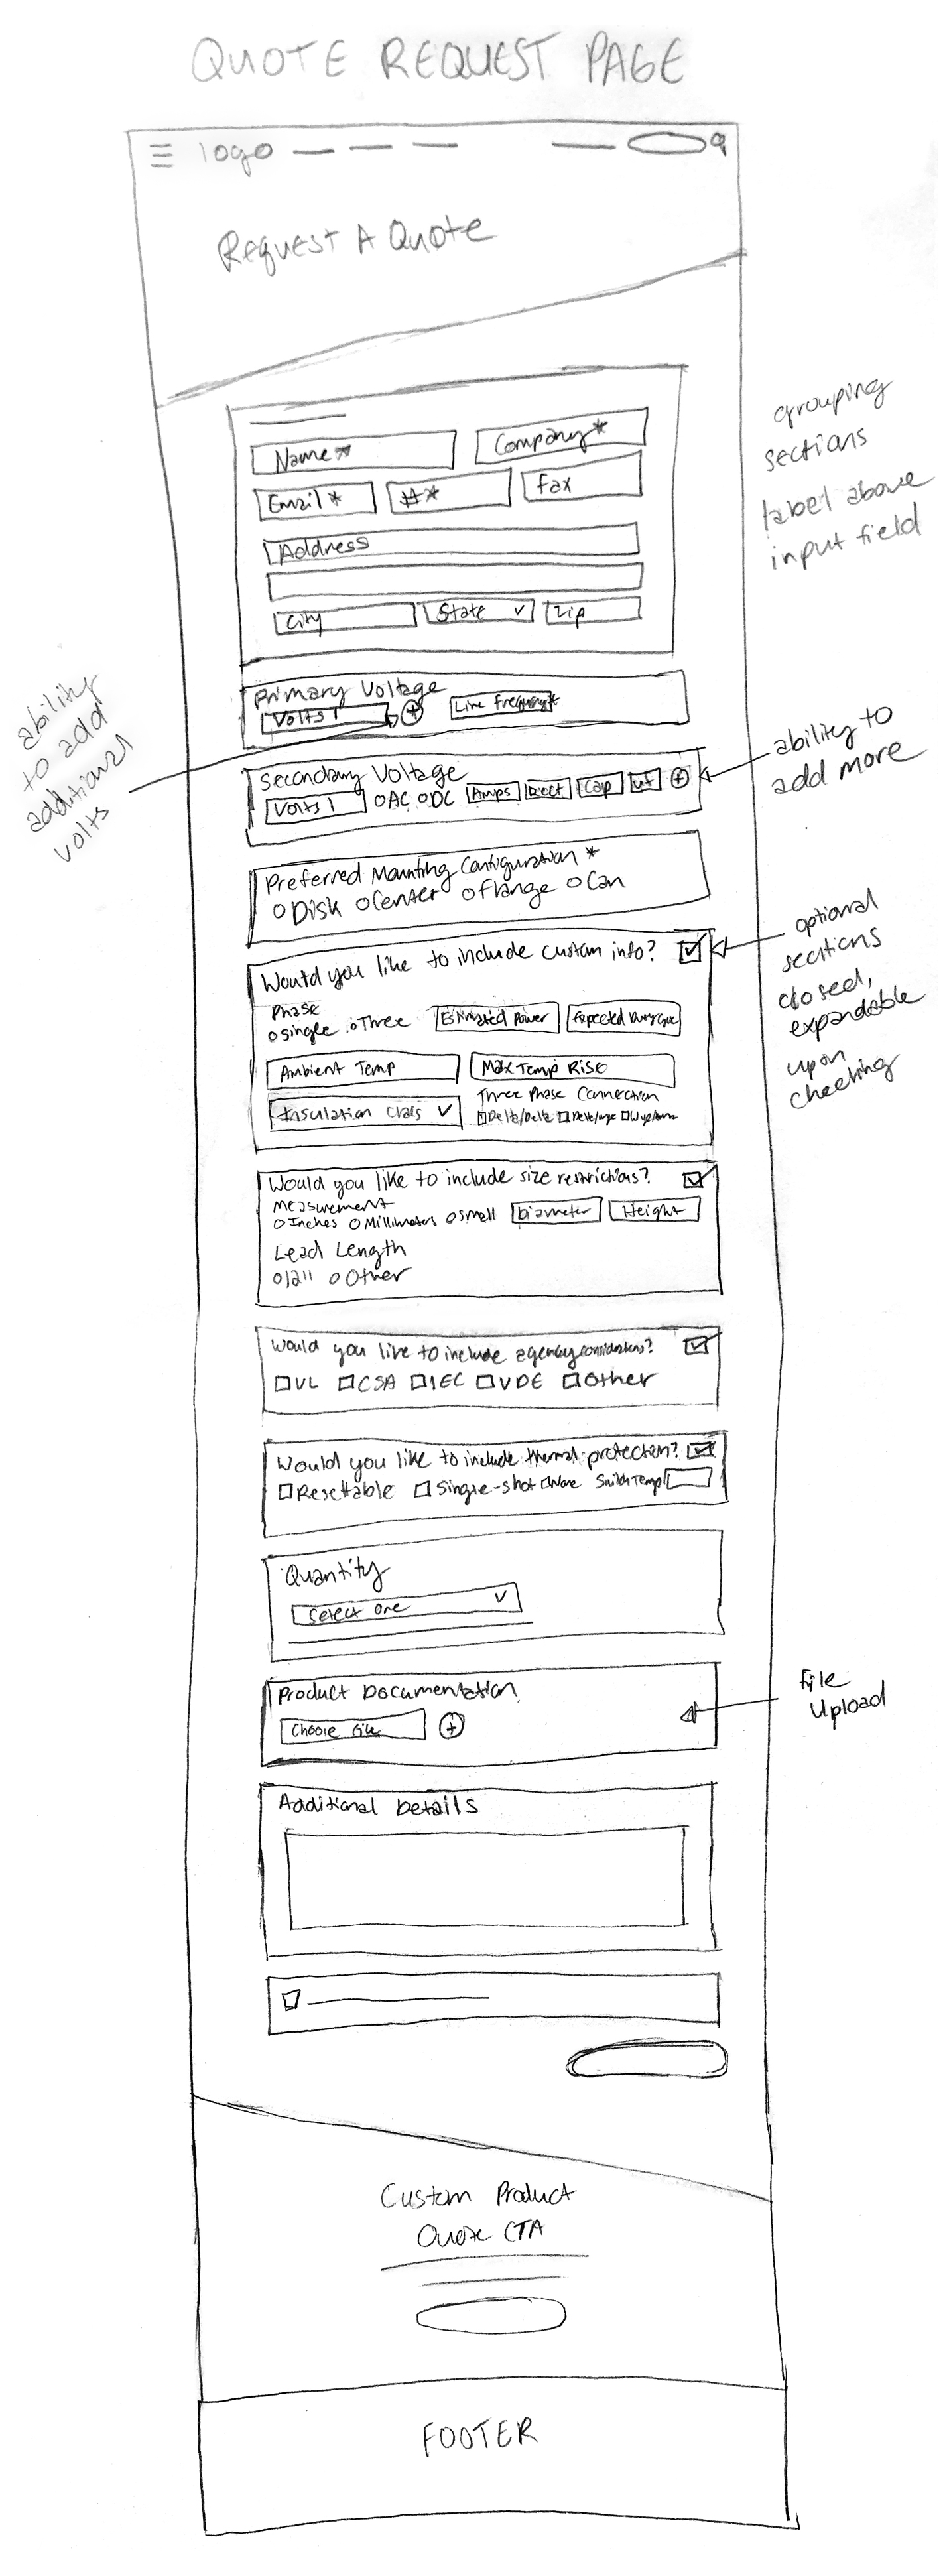 QUOTE REQUEST PAGE
logo
Request A Quote
grouping
sections
label above
input field
Name *
Company*
Email *
#*
Fax
Address
City
State
Zip
ability
to add
additional
volts
Primary Voltage
Volts 1
+
Line Frequency*
Secondary Voltage
Volts 1
AC
DC
Amps
Rect
Cap
+
ability to
add more
Preferred Mounting Configuration *
Disk
Center
Flange
Can
Would you like to include custom info?
optional
sections
closed,
expandable
upon
checking
Phase
single
Three
Estimated Power
Expected Duty Cycle
Ambient Temp
Max Temp Rise
Insulation Class
Three Phase Connection
Delta/Delta
Delta/Wye
Would you like to include size restrictions?
Measurement
Inches
Millimeters
Small
Diameter
Height
Lead Length
Other
Would you like to include agency considerations?
UL
CSA
IEC
VDE
Other
Would you like to include thermal protection?
Resettable
Single-shot
None
Switch Temp
Quantity
Select One
Product Documentation
Choose File
+
File
Upload
Additional Details
Custom Product
Quote CTA
FOOTER